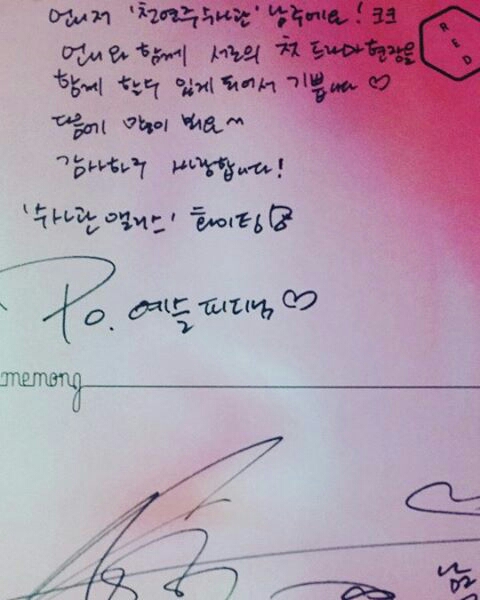 언니저 '천연주수사관' 남주에요! ㅋㅋ
언니와 함께 서로의 첫 드라마현장을
함께 할수 있게 되어서 기쁩니다 ♡
다음에 많이 봬요~
감사하구 사랑합니다!
'수사관 앨리스' 화이팅
To. 예슬 피디님 ♡
memong
RED
남